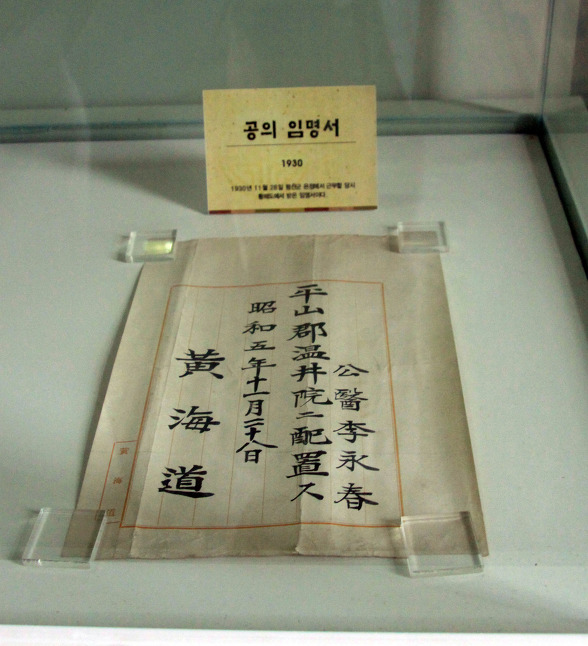 공의 임명서
1930
1930년 11월 28일 평산군 온정에서 근무할 당시
황해도에서 받은 임명서이다.
公醫李永春
平山郡温井院ニ配置ス
昭和五年十一月二十八日
黃海道
黃海道